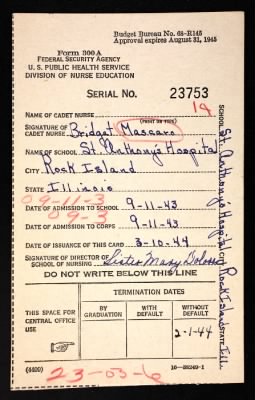 Budget Bureau No. 68-R145
Approval expires August 31, 1945
Form 300A
FEDERAL SECURITY AGENCY
U. S. PUBLIC HEALTH SERVICE
DIVISION OF NURSE EDUCATION
SERIAL NO. 23753
19
NAME OF CADET NURSE
(PRINT OR TYPE)
SIGNATURE OF CADET NURSE Bridget Mascaro
NAME OF SCHOOL St. Anthony's Hospital
CITY Rock Island
STATE Illinois
09-11-3
DATE OF ADMISSION TO SCHOOL 9-11-43
09-3
DATE OF ADMISSION TO CORPS 9-11-43
DATE OF ISSUANCE OF THIS CARD 3-10-44
SIGNATURE OF DIRECTOR OF SCHOOL OF NURSING Sister Mary
DO NOT WRITE BELOW THIS LINE
THIS SPACE FOR CENTRAL OFFICE USE
TERMINATION DATES
BY GRADUATION
WITH DEFAULT
WITHOUT DEFAULT
2-1-44
(4400)
23-03-6
SCHOOL St. Anthony's Hospital
Rock Island STATE Ill.